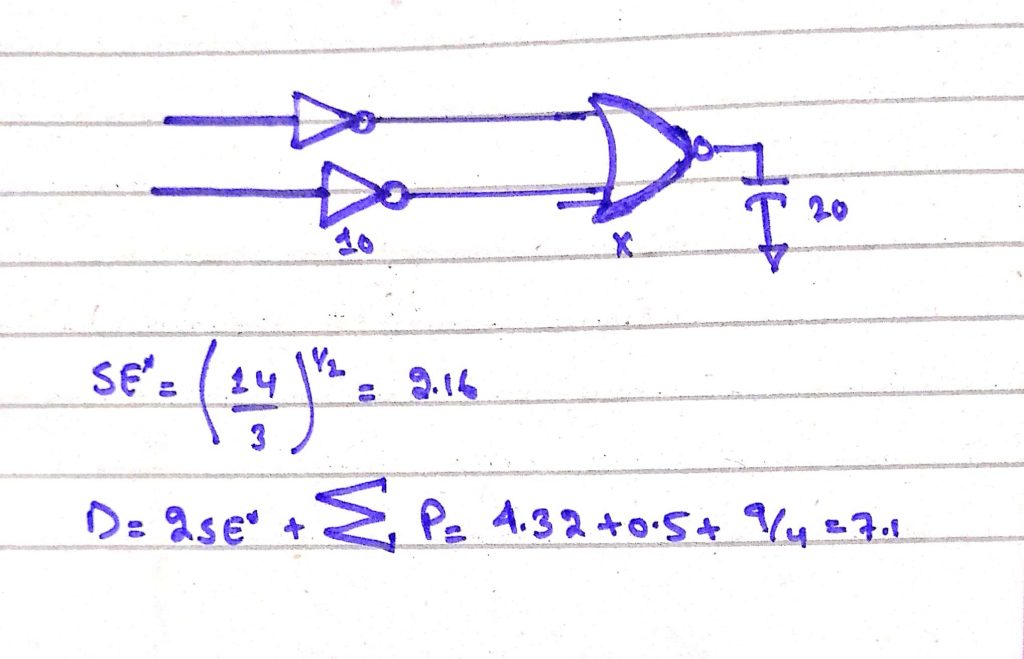 10
x
20
SE* = (14/3)^1/2 = 2.16
D = 2SE* + Σ P = 4.32 + 0.5 + 9/4 = 7.1